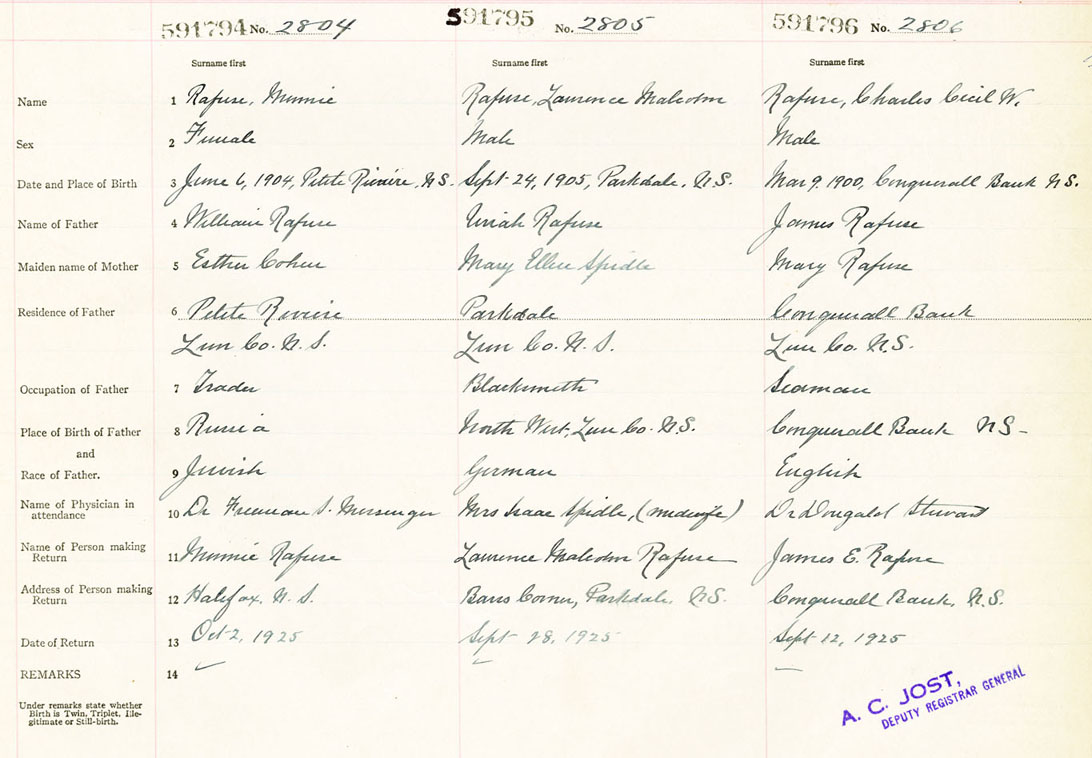 591794 No. 2804 591795 No. 2805 591796 No. 2806
Surname first Surname first Surname first
Name 1 Rafuse, Minnie Rafuse, Laurence Malcolm Rafuse, Charles Cecil W.
Sex 2 Female Male Male
Date and Place of Birth 3 June 6, 1904, Petite Riviere, N.S. Sept 24, 1905, Parkdale, N.S. Mar 9, 1900, Conquerall Bank N.S.
Name of Father 4 William Rafuse Uriah Rafuse James Rafuse
Maiden name of Mother 5 Esther Cohen Mary Ellen Spidle Mary Rafuse
Residence of Father 6 Petite Riviere Parkdale Conquerall Bank
Lun Co. N.S. Lun Co. N.S. Lun Co. N.S.
Occupation of Father 7 Trader Blacksmith Seaman
Place of Birth of Father 8 Russia North West, Lun Co. N.S. Conquerall Bank NS-
and
Race of Father. 9 Jewish German English
Name of Physician in
attendance 10 Dr Freeman S. Messenger Mrs Isaac Spidle, (midwife) Dr Dougald Stewart
Name of Person making
Return 11 Minnie Rafuse Laurence Malcolm Rafuse James E. Rafuse
Address of Person making
Return 12 Halifax, N.S. Barss Corner, Parkdale, N.S. Conquerall Bank, N.S.
Date of Return 13 Oct 2, 1925 Sept 28, 1925 Sept 12, 1925
REMARKS 14
Under remarks state whether
Birth is Twin, Triplet, Ille-
gitimate or Still-birth.
A. C. JOST,
DEPUTY REGISTRAR GENERAL